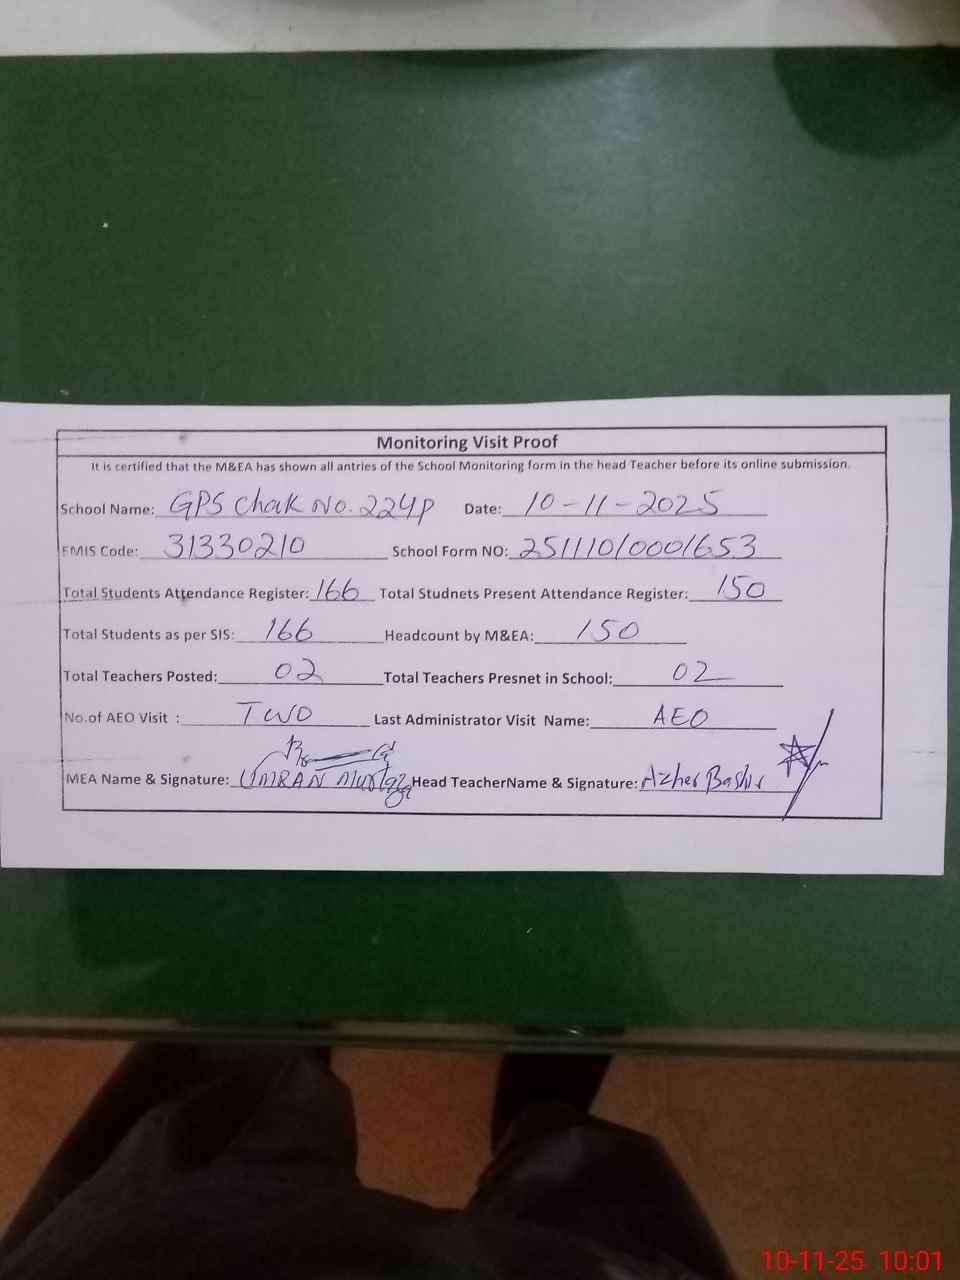 Monitoring Visit Proof
It is certified that the M&EA has shown all antries of the School Monitoring form in the head Teacher before its online submission.
School Name: GPS Chak No. 224P Date: 10-11-2025
EMIS Code: 31330210 School Form NO: 251110/0001653
Total Students Attendance Register: 166 Total Studnets Present Attendance Register: 150
Total Students as per SIS: 166 Headcount by M&EA: 150
Total Teachers Posted: 02 Total Teachers Presnet in School: 02
No.of AEO Visit : TWO Last Administrator Visit Name: AEO
MEA Name & Signature: UMRAN Murtaza Head TeacherName & Signature: Azher Bashir
10-11-25 10:01